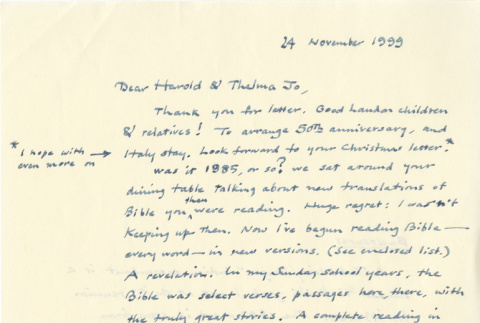 24 November 1999
Dear Harold & Thelma Jo,
Thank you for letter. Good Landon children
& relatives! To arrange 50th anniversary, and
Italy stay. Look forward to your Christmas letter.*
* I hope with →
even more on
Was it 1985, or so? we sat around your
dining table talking about new translations of
Bible you then were reading. Huge regret: I wasn't
keeping up then. Now I've begun reading Bible —
every word — in new versions. (See enclosed list.)
A revelation. In my Sunday school years, the
Bible was select verses, passages here, there, with
the truly great stories. A complete reading in